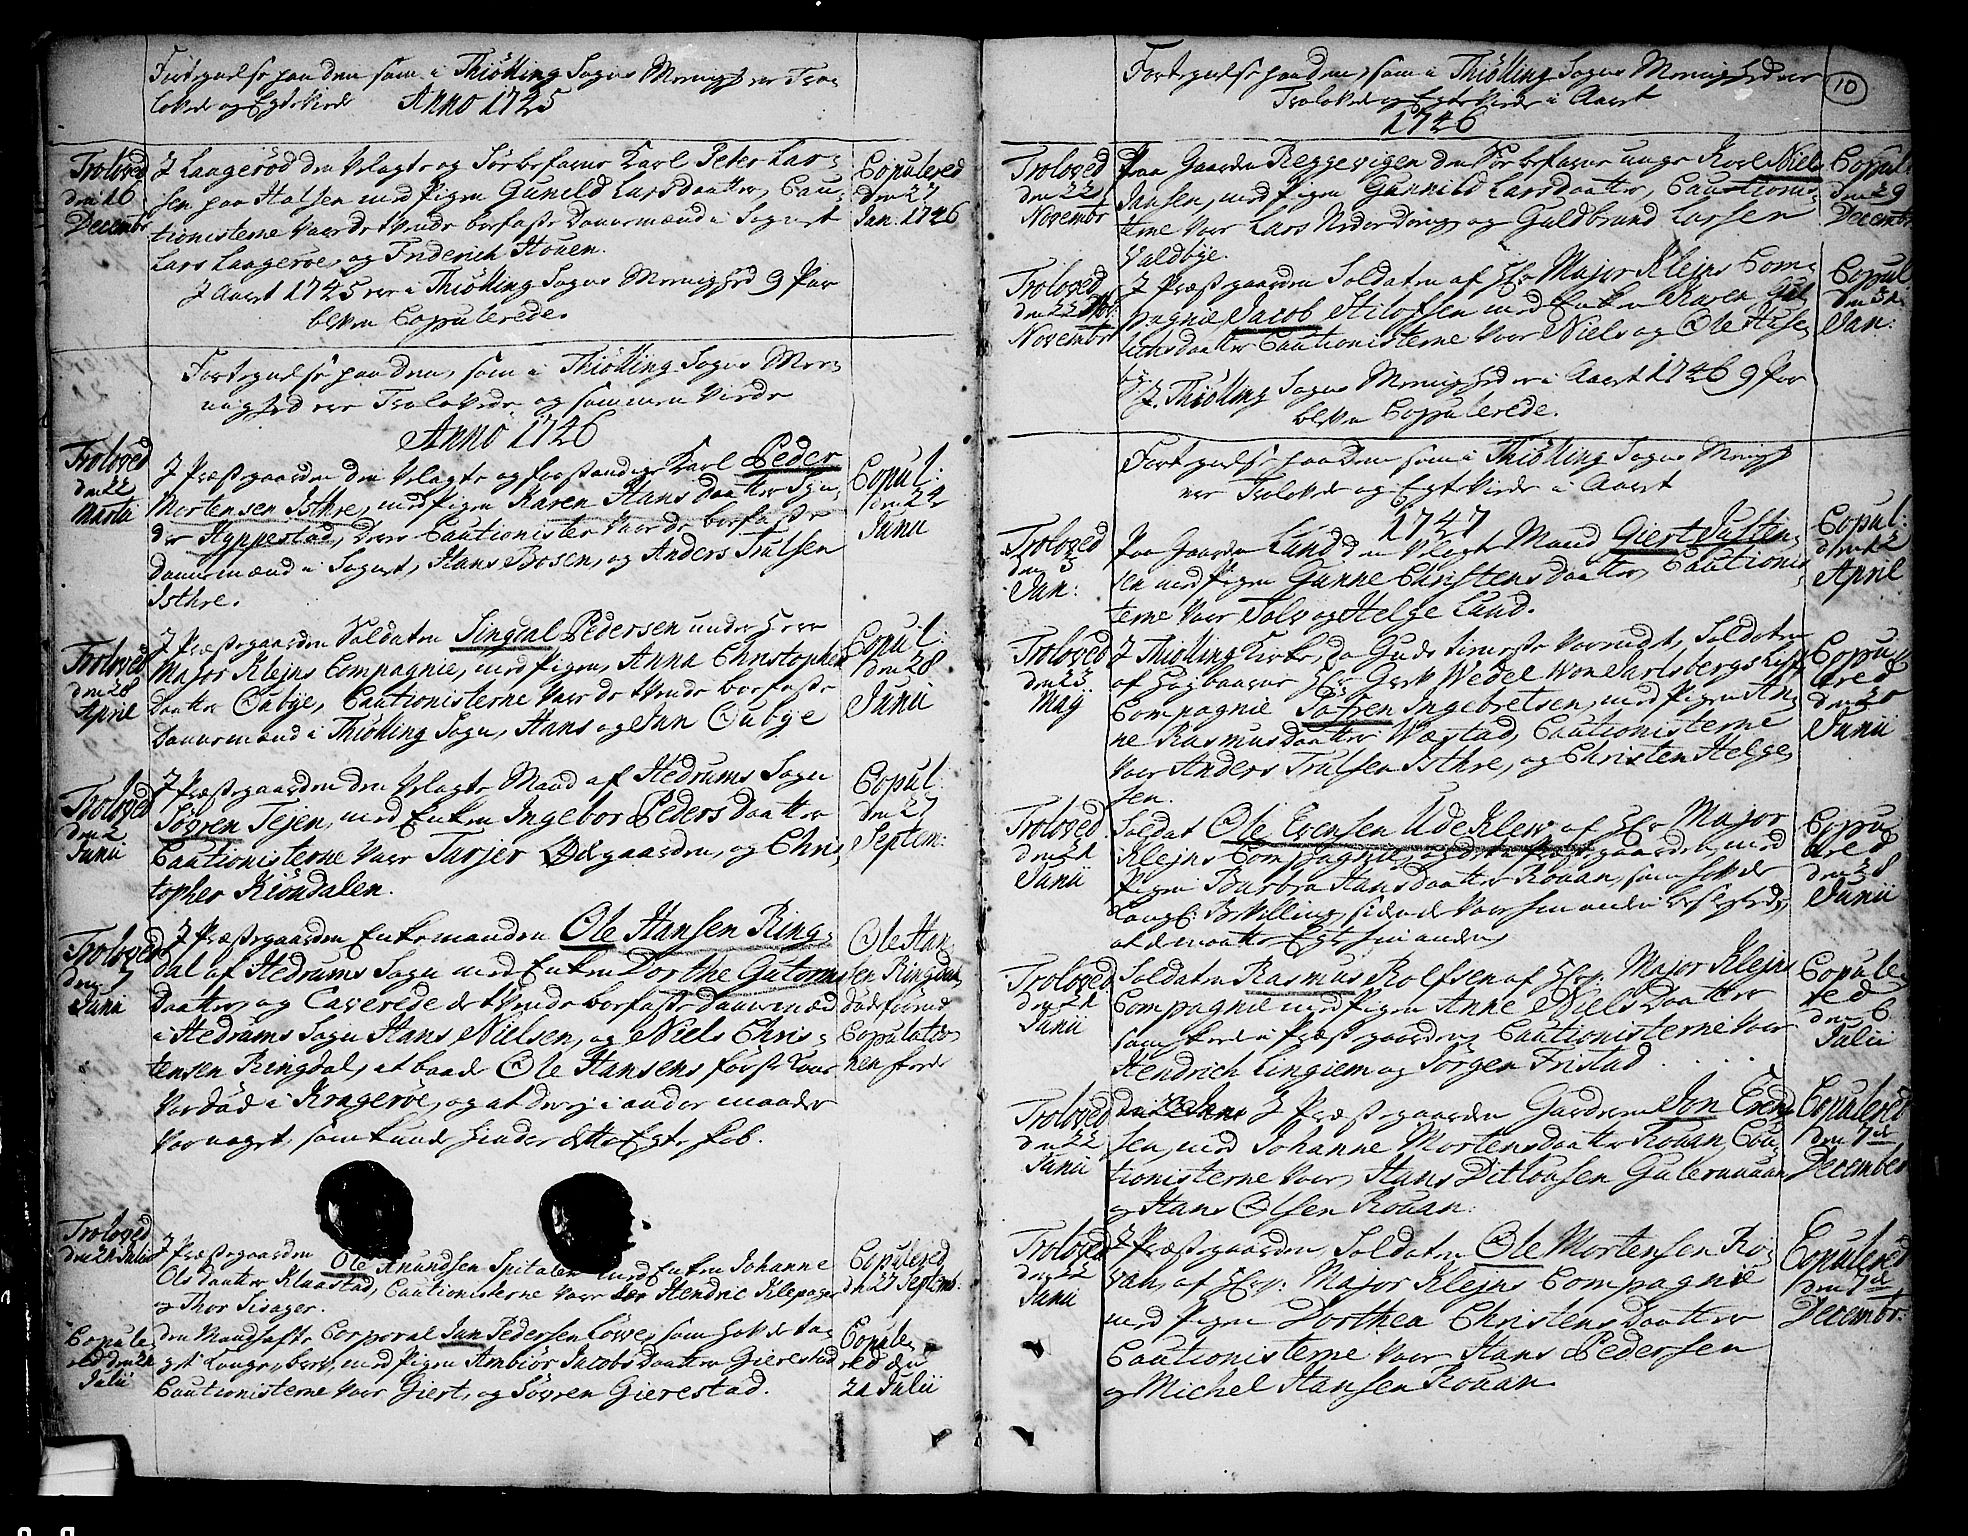 Fortegnelse paa dem som i Thiölling Sogns Menighed ere Tro=
lovede og Egteviede Anno 1745
Troloved
den 16
Decembr
I Laagerød den Velagte og Søebefarne Karl Peter Lar=
sen paa Halsen med Pigen Gunild Larsdaatter, Cau=
tionisterne vaar de tvende boesatte Dannemænd i Sognet
Lars Laageröe, og Friderich Houen.
Copulered
den 27
Jan. 1746
I Aaret 1745 ere i Thiölling Sogns Menighed 9 Par
bleven Copulerede.
Fortegnelse paa dem, som i Thiölling Sogns Me=
nighed ere Trolovede og sammen viede
Anno 1746
Troloved
den 22
Martii
I Præstegaarden den Velagte og forstandige Karl Peder
Mortensen Isthre, med Pigen Karen Hans daatter
Hyppestad, Deres Cautionister vaar de boesatte
Dannemænd i Sognet, Hans Bosen, og Anders Trulsen
Isthre.
Copul:
den 24
Junii
Troloved
den 28
April
I Præstegaarden Soldaten Singdal Pedersen under Herr
Major Klejns Compagnie, med Pigen, Anna Christophers
daatter Oubye, Cautionisterne vaar de tvende boesatte
Dannemænd i Thiölling Sogn, Hans og Jan Oubye
Copul:
den 28
Junii
Troloved
den 2
Junii
I Præstegaarden den Velagte Mand af Hedrums Sogn
Søvren Tejen, med Enken Ingebor Peders daatter
Cautionisterne vaar Tarjer Ødegaarden, og Chris
topher Kiöndalen.
Copul:
den 27
Septem:
Troloved
den 7
Junii
I Præstegaarden Enkemanden Ole Hansen Ring=
dal af Hedrums Sogn med Enken Dorthe Gutorms
daatter, og Caverede de tvende boesatte Dannemænd
i Hedrums Sogn Hans Nielsen, og Niels Chris=
tensen Ringdal, at baade Ole Hansens første Kone
var død i Kragerøe, og at der ej i andre maader
var noget, som kunde hindre dette Egteskab.
Ole Han=
sen Ringdal
døde forend
Copulatio=
nen skeede
Troloved
den 21 Julii
I Præstegaarden Ole Knundsen Spitalen med Enken Johanne
Olsdaatter Klaastad, Cautionisterne vaar Hendric Klepager
og Thor Sisager.
Copulered
den 27 Septemb.
Copule=
red den 21
Julii
den Mandhafte Corporal Jan Pedersen Löwe, som havde ta=
get Konge brev, med Pigen Ambiör Jacobsdaatter Gierestad
Cautionisterne vaar Giert, og Søvren Gierestad.
Copule=
red den
21 Julii
10
Fortegnelse paa dem, som i Thiölling Sogns Menighed ere
Trolovede og Egteviede i Aaret
1746
Troloved
den 22
Novembr
Paa Gaarden Reggevigen den Søe befarne unge Karl Niels
Jansen, med Pigen Gunnild Larsdaatter, Cautionis=
terne vaar Lars og Guldbrand Larsen
Valdbye.
Copul:
den 29
Decembr
Troloved
den 22
Novembr
I Præstegaarden Soldaten af Hr Major Klejns Com=
pagnie Jacob Hilofsen med Enken Karen Gul
Cautionisterne vaar Niels og Ole Huse=
by.
Copul:
Jan:
I Thiölling Sogns Menighed ere i Aaret 1746 9 Par
bleven Copulerede.
Fortegnelse paa dem som i Thiölling Sogns Menighed
ere Trolovede og Egteviede i Aaret
1747
Troloved
den 5
Jan:
Paa Gaarden Lund den Velagte Mand Giert Justen=
sen med Pigen Gunne Christens daatter, Cautionis=
terne vaar Solv og Helge Lund.
Copul:
den 12
April
Troloved
den 25
Maj
I Thiölling Kirke, da Guds tieneste var endt, Soldaten
af Høybaarne Hr Grev Wedel Won Jarlsbergs Lif
Compagnie Søfren Ingebretsen, med Pigen An=
ne Rasmusdaatter Wæstad, Cautionisterne
vaar Anders Trulsen Isthre, og Christen Helge
sen.
Copu=
lered
den 28
Junii
Troloved
den 21
Junii
Soldat Ole Evensen Ude Klew af Hr Major
Klejns Compagnie, med
Pigen Barbra Hansdaatter Rouan, som havde
Kongl: Bevilling, siden de vaar hin anden beslegtede,
at de maatte Egte hin anden,
Copu=
lered
den 28
Junii
Troloved
den 21
Junii
Soldaten Rasmus Rolfsen af Hr. Major Klejns
Compagnie med Pigen Anne Niels daatter
som skeede i Præstegaarden, Cautionisterne vaar
Hendrich Lingiem og Jörgen Fristad
Copule=
red
den 6
Julii
Troloved
den 22
Junii
I Præstegaarden Jon Evend
sen, med Johanne Mortensdaatter Rouan, Cau
tionisterne vaar, Hans Ditlousen Gulernauan
og Hans Olsen Rouan.
Copulered
den 7de
December
Troloved
den 22
Junii
I Præstegaarden, Soldaten Ole Mortensen Ro=
van, af Hr. Major Klejns Compagnie
med Pigen Dorthea Christens daatter
Cautionisterne vaar Hans Pedersen
og Michel Hansen Rouan.
Copulered
den 7de
Decembr.